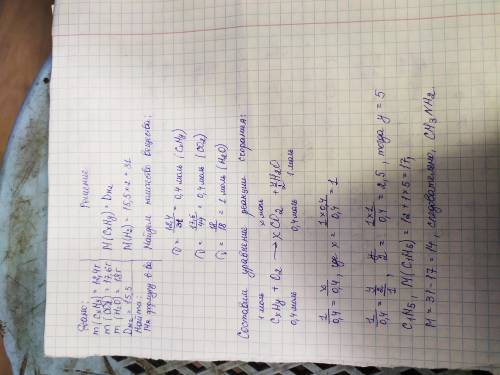 Дано:
m(CxHy) = 12,4г
m(CO2) = 17,6г
m(H2O) = 18г
DH2 = 15,5
Найти:
Мх формулу в ва
Решение
M(CxHy) = DH2
M(H2) = 15,5 × 2 = 31
Найдем количество вещества:
υ = 12,4/31 = 0,4 моль (CxHy)
υ = 17,6/44 = 0,4 моль (CO2)
υ = 18/18 = 1 моль (H2O)
Составим уравнение реакции сгорания:
1 моль x моль
CxHy + O2 → xCO2 + y/2H2O
0,4 моль 0,4 моль 1 моль
1/0,4 = x/0,4, где x = 1×0,4/0,4 = 1
1/0,4 = y/2/1, y/2 = 1×1/0,4 = 2,5, тогда y = 5
C1H5, M(C1H5) = 12 + 1×5 = 17,
M = 31 - 17 = 14, следовательно, CH3NH2